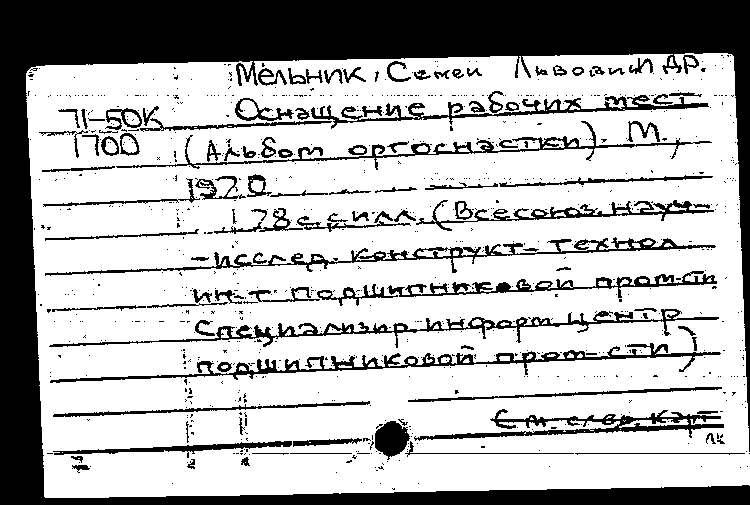 Мельник, Семен Львович и др.
71-50К Оснащение рабочих мест
1700 (Альбом оргоснастки). М.,
1970
78 с. с илл. (Всесоюз. науч-
-исслед. конструкт.- технол
ин-т подшипниковой пром-сти
Специализир. информ. центр
подшипниковой пром-сти)
См. след. карт
лк